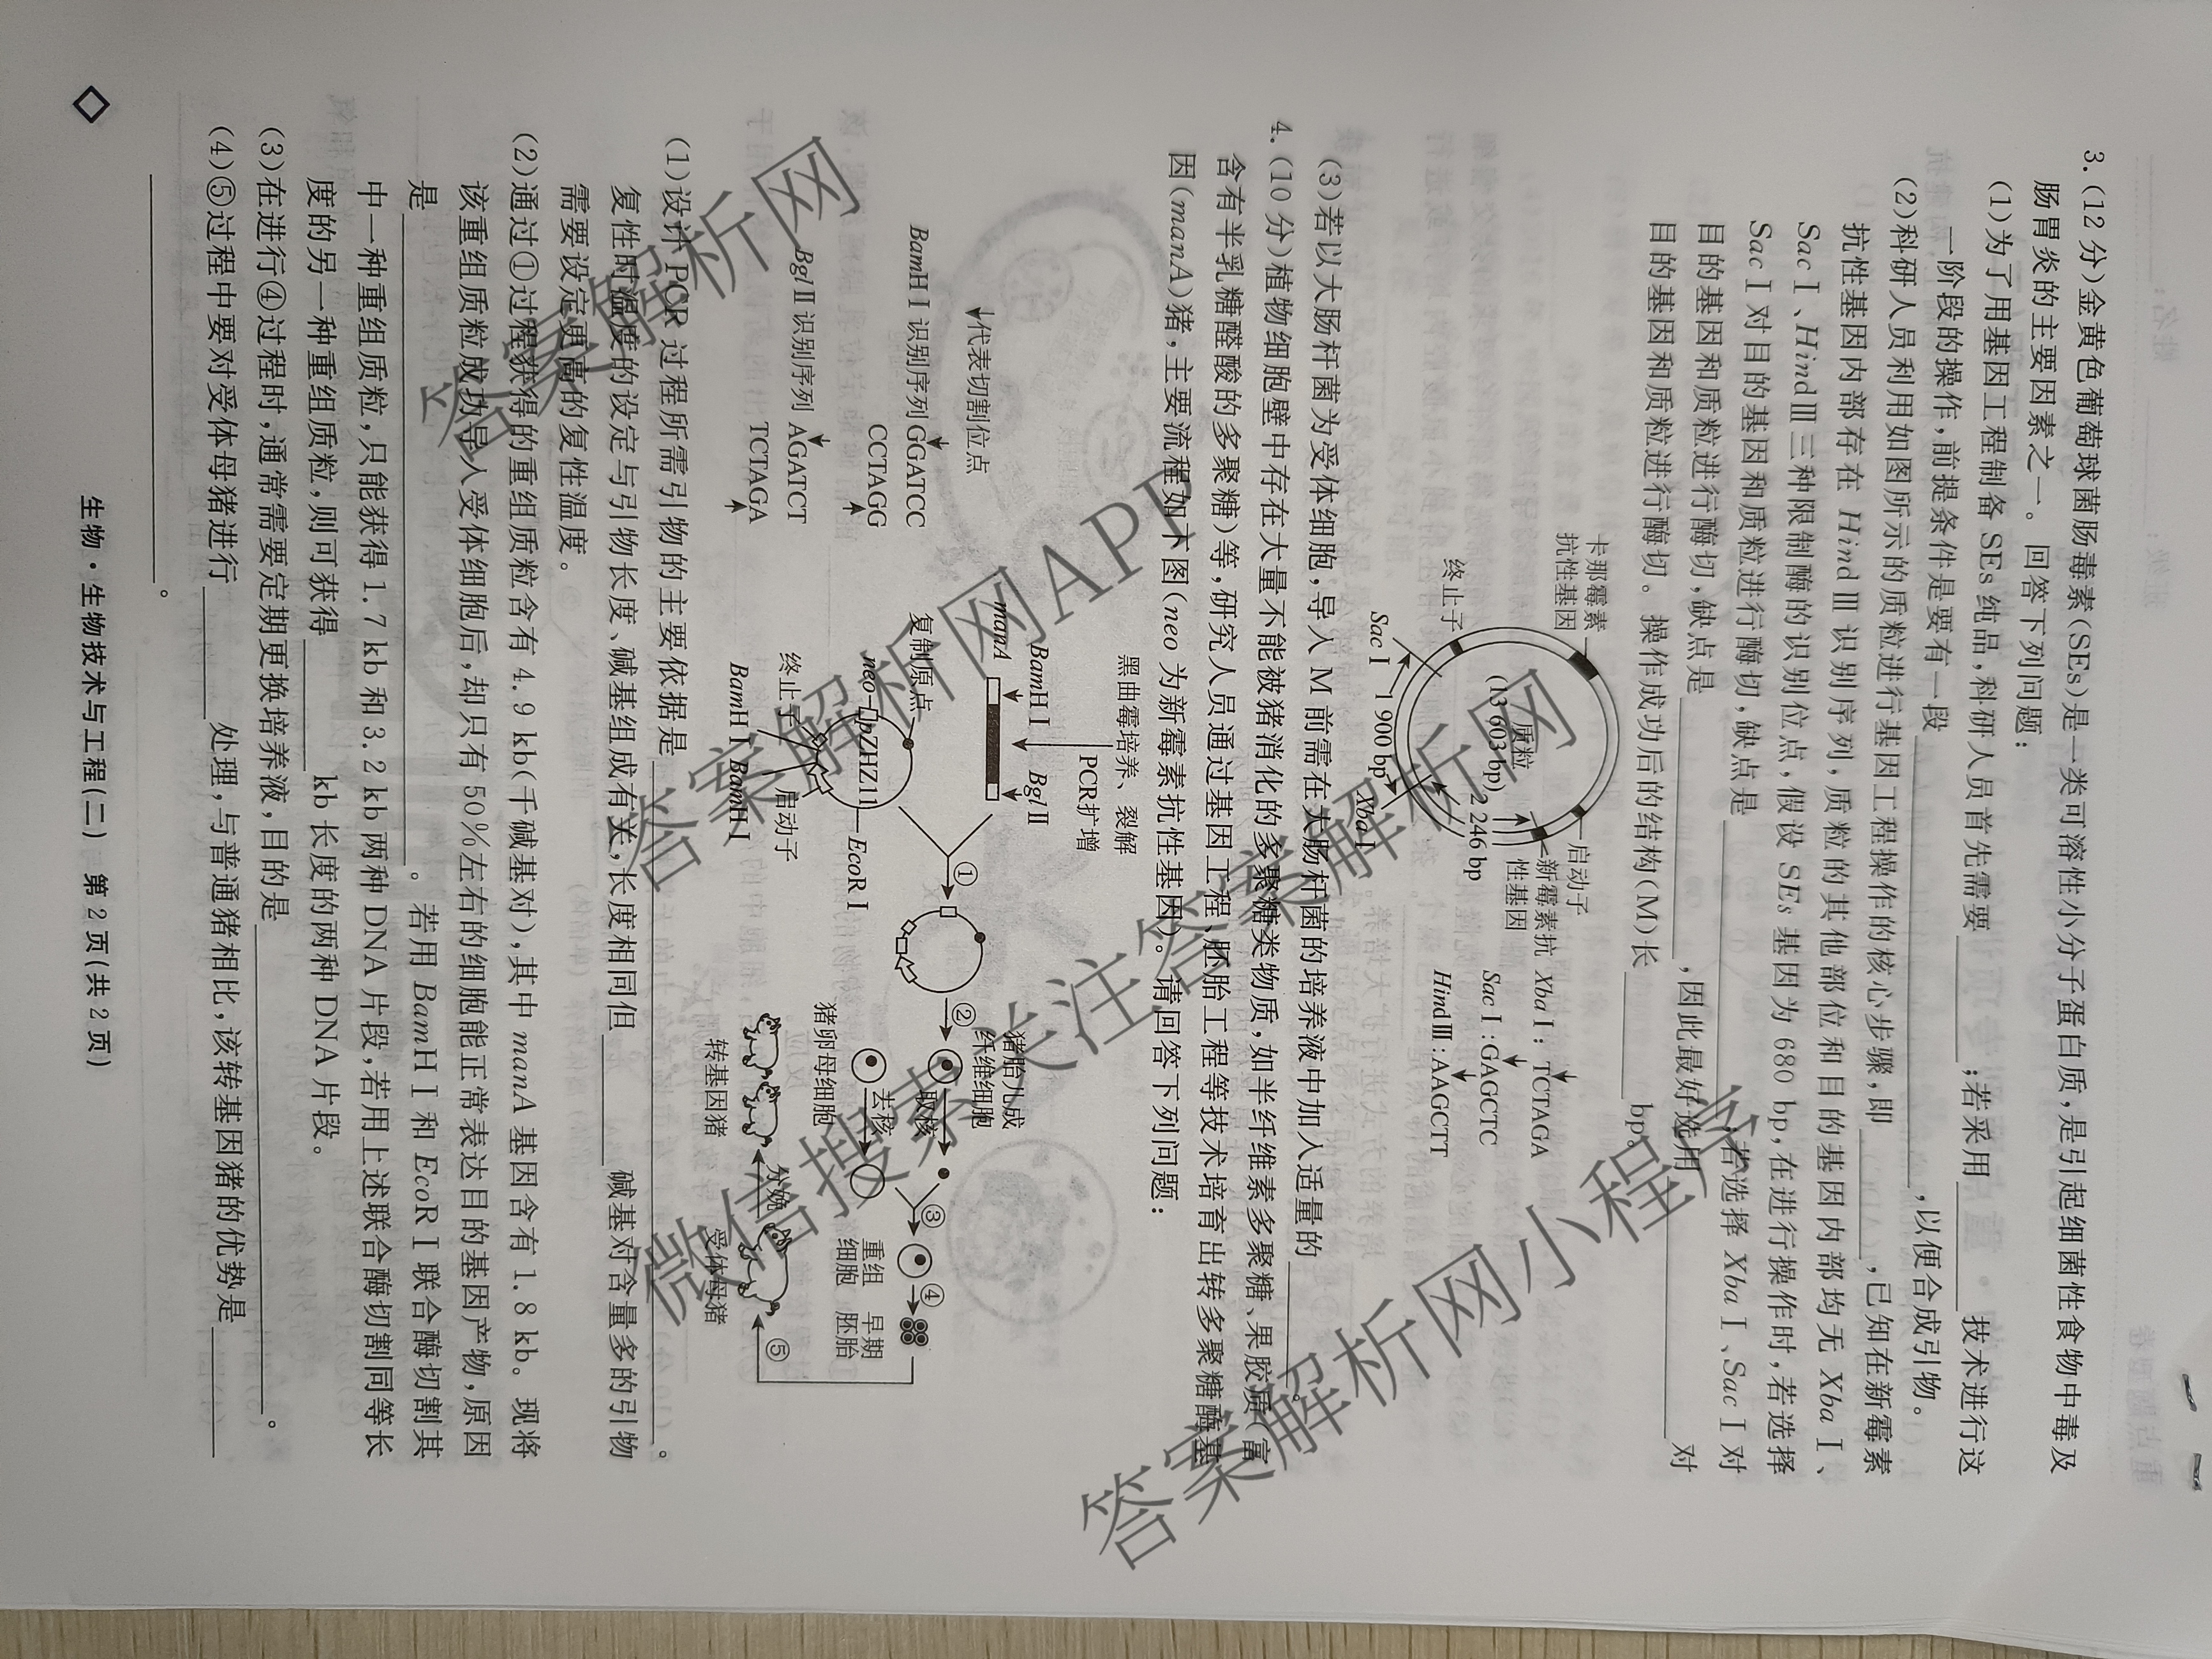 3.(12分)金黄色葡萄球菌肠毒素(SEs)是一类可溶性小分子蛋白质,是引起细菌性食物中毒及
肠胃炎的主要因素之一。回答下列问题:
(1)为了用基因工程制备SEs纯品,科研人员首先需要________;若采用________技术进行这
一阶段的操作,前提条件是要有一段________________,以便合成引物。
(2)科研人员利用如图所示的质粒进行基因工程操作的核心步骤,即________,已知在新霉素
抗性基因内部存在HindⅢ识别序列,质粒的其他部位和目的基因内部均无XbaⅠ、
SacⅠ、HindⅢ三种限制酶的识别位点,假设SEs基因为680 bp,在进行操作时,若选择
SacⅠ对目的基因和质粒进行酶切,缺点是________________;若选择XbaⅠ、SacⅠ对
目的基因和质粒进行酶切,缺点是________________,因此最好选用________________对
目的基因和质粒进行酶切。操作成功后的结构(M)长________bp。
卡那霉素
抗性基因
启动子
新霉素抗
性基因
质粒
(13 603 bp)
2 246 bp
终止子
SacⅠ
1 900 bp
XbaⅠ
XbaⅠ:TCTAGA
SacⅠ:GAGCTC
HindⅢ:AAGCTT
(3)若以大肠杆菌为受体细胞,导入M前需在大肠杆菌的培养液中加入适量的________。
4.(10分)植物细胞壁中存在大量不能被猪消化的多聚糖类物质,如半纤维素多聚糖、果胶质(富
含有半乳糖醛酸的多聚糖)等,研究人员通过基因工程、胚胎工程等技术培育出转多聚糖酶基
因(manA)猪,主要流程如下图(neo为新霉素抗性基因)。请回答下列问题:
↓代表切割位点
BamHⅠ识别序列GGATCC
CCTAGG
BglⅡ识别序列AGATCT
TCTAGA
黑曲霉培养、裂解
PCR扩增
BamHⅠ
BglⅡ
manA
复制原点
neo
pZHZ11
EcoRⅠ
终止子
启动子
BamHⅠ BamHⅠ
①
②
猪胎儿成
纤维细胞
取核
去核
猪卵母细胞
③
重组
细胞
④
早期
胚胎
⑤
受体母猪
分娩
转基因猪
(1)设计PCR过程所需引物的主要依据是________________________________。
复性时温度的设定与引物长度、碱基组成有关,长度相同但________碱基对含量多的引物
需要设定更高的复性温度。
(2)通过①过程获得的重组质粒含有4.9 kb(千碱基对),其中manA基因含有1.8 kb。现将
该重组质粒成功导入受体细胞后,却只有50%左右的细胞能正常表达目的基因产物,原因
是________________________________。若用BamHⅠ和EcoRⅠ联合酶切割其
中一种重组质粒,只能获得1.7 kb和3.2 kb两种DNA片段,若用上述联合酶切割同等长
度的另一种重组质粒,则可获得________kb长度的两种DNA片段。
(3)在进行④过程时,通常需要定期更换培养液,目的是________________________。
(4)⑤过程中要对受体母猪进行________处理,与普通猪相比,该转基因猪的优势是________
________________。
生物·生物技术与工程(二) 第2页(共2页)
答案解析网
答案解析网APP
答案解析网
关注答案解析网
微信搜索
答案解析网小程序